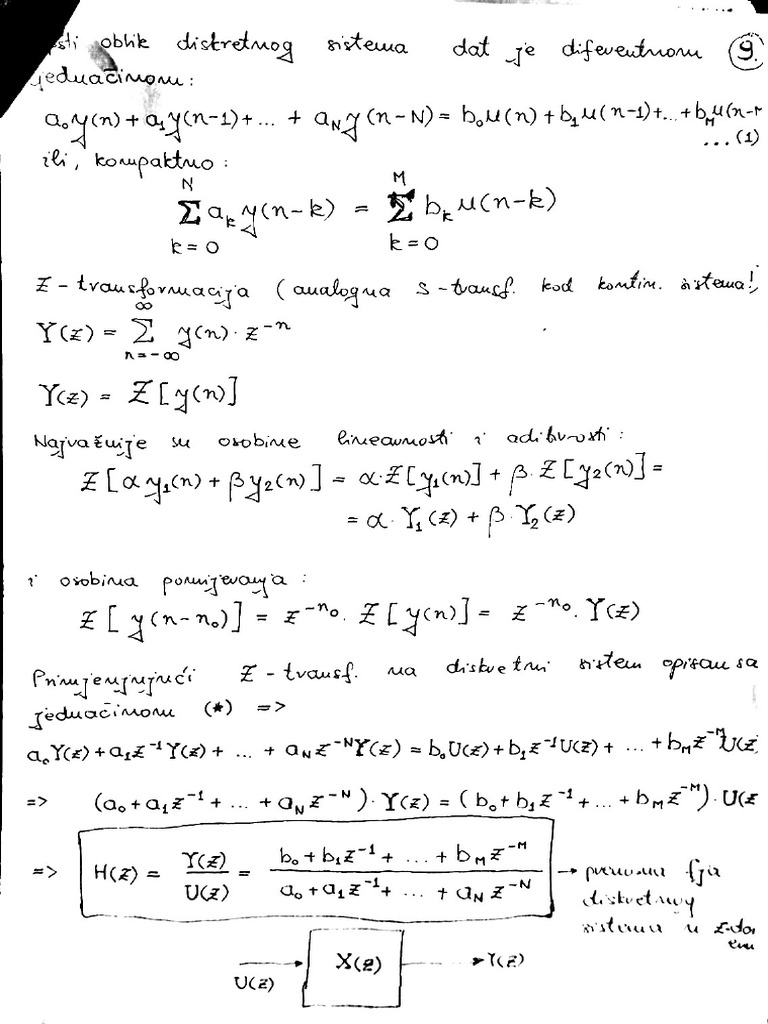 oblik diskretnog sistema dat je diferentnom 9.
jednačinom:
a₀y(n)+a₁y(n-1)+...+a_N y(n-N)=b₀u(n)+b₁u(n-1)+...+b_M u(n-M
...(1)
ili, kompaktno:
N M
Σ a_k y(n-k) = Σ b_k u(n-k)
k=0 k=0
Z-transformacija (analogna S-transf. kod kontin. sistema!)
∞
Y(z) = Σ y(n)·z⁻ⁿ
n=-∞
Y(z) = Z[y(n)]
Najvažnije su osobine linearnosti i aditivnosti:
Z[αy₁(n)+βy₂(n)] = α·Z[y₁(n)]+β·Z[y₂(n)]=
= α·Y₁(z)+β·Y₂(z)
i osobina pomijeranja:
Z[y(n-n₀)] = z^-n₀·Z[y(n)] = z^-n₀·Y(z)
Primjenjujući Z-transf. na diskretni sistem opisan sa
jednačinom (*) =>
a₀Y(z)+a₁z⁻¹Y(z)+...+a_N z^-N Y(z)=b₀U(z)+b₁z⁻¹U(z)+...+b_M z^-M U(z)
=> (a₀+a₁z⁻¹+...+a_N z^-N)·Y(z)=(b₀+b₁z⁻¹+...+b_M z^-M)·U(z
=> H(z) = Y(z)/U(z) = (b₀+b₁z⁻¹+...+b_M z^-M)/(a₀+a₁z⁻¹+...+a_N z^-N) → prenosna fja
diskretnog
sistema u z-do
menu
U(z) X(z) Y(z)